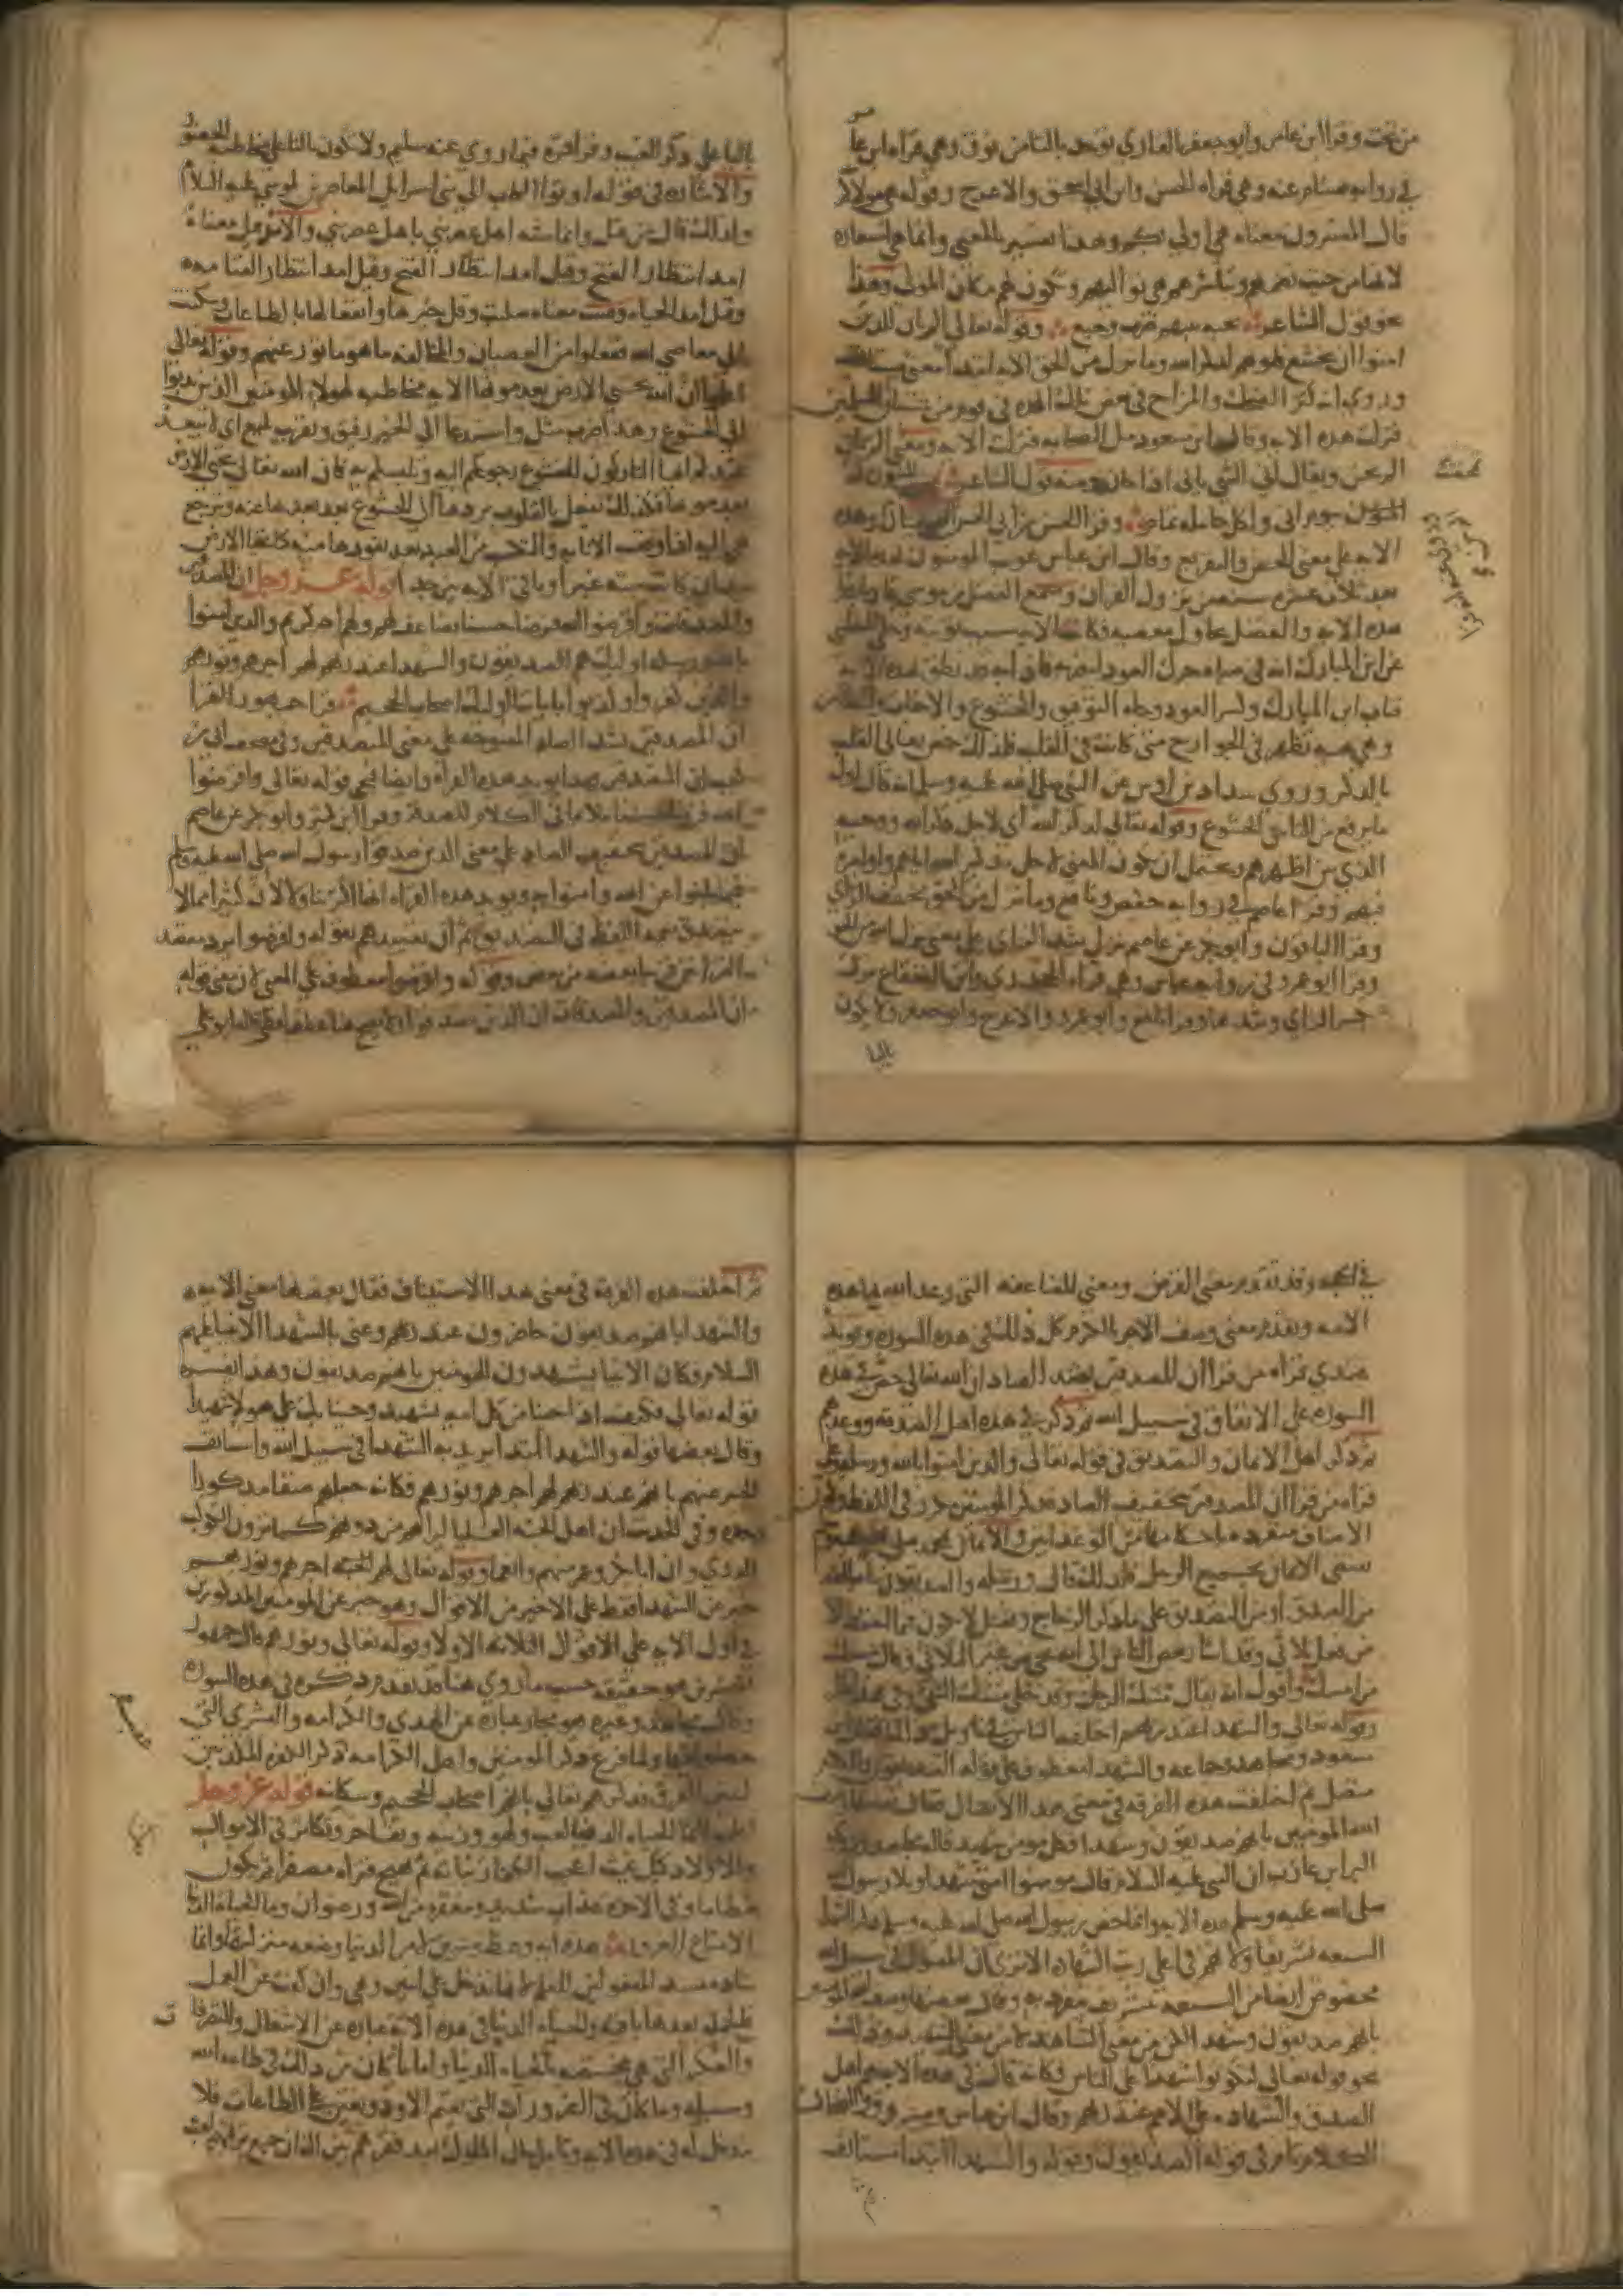 من تحت وقرا ابن عامر وابو جعفر القاري توخذ بالتا من فوق وهي قراة ابن عا
في رواية هشام عنه وهي قراة الحسن وابن ابي اسحق والاعرج وقوله هي مولاكم
قال المفسرون معناه هي اولي بكم وهذا تفسير بالمعنى وانما هي استعارة
لانها من حيث تضمهم وتباشرهم هي تواليهم وتكون لهم مكان المولى وهذا
نحو قول الشاعر تحية بينهم ضرب وجيع وقوله تعالى الم يان للذين
امنوا ان تخشع قلوبهم لذكر الله وما نزل من الحق الاية ابتدا معنى مستانف
وروي انه كثر الضحك والمزاح في بعض تلك المدة في قوم من شبان المسلمين
فنزلت هذه الاية وقال ابن مسعود مل الصحابة فنزلت الاية ومعنى الم يان
الم يحن ويقال اني الشي ياني اذا حان ومنه قول الشاعر تمخضت المنون له
بيوم اني ولكل حاملة تمام وقرا الحسن بن ابي الحسن الم يان وهذه
الاية على معنى الحض والتقريع وقال ابن عباس عوتب المومنون بهذه الاية
بعد ثلاث عشرة سنة من نزول القران وسمع الفضل بن موسى قاريا يقرا
هذه الاية والفضل يحاول معصية فكانت الاية سبب توبته وحكى الثعلبي
عن ابن المبارك انه في صباه حرك العود ليضربه فاذا به قد نطق بهذه الاية
فتاب ابن المبارك وكسر العود وجاه التوفيق والخشوع والاخبات والتطامن
وهي هيية تظهر في الجوارح متى كانت في القلب فلذلك خص تعالى القلب
بالذكر وروى شداد بن اوس عن النبي صلى الله عليه وسلم انه قال اول
ما يرفع من الناس الخشوع وقوله تعالى لذكر الله اي لاجل ذكر الله ووحيه
الذي بين اظهرهم ويحتمل ان يكون المعنى لاجل تذكير الله اياهم واوامره
فيهم وقرا عاصم في رواية حفص ونافع وما نزل من الحق بتخفيف الزاي
وقرا الباقون وابو بكر عن عاصم نزل بشد الزاي على معنى نزل الله من الحق
وقرا ابو عمرو في رواية عباس وهي قراة الجحدري وابن القعقاع نزل
بكسر الزاي وشدها وقرا نافع وابو عمرو والاعرج وابو جعفر ولا يكون
باليا
باليا على ذكر الغيب وقرا حمزة فيما روى عنه سليم ولا تكون بالتا على مخاطبة الحضور
والاشارة في قوله اوتوا الكتاب الي بني اسرايل المعاصرين لموسى عليه السلام
ولذلك قال من قبل وانما شبه اهل عصر نبي باهل عصر نبي والامد قيل معناه
امد انتظار الفتح وقيل امد انتظار الفتح وقيل امد انتظار القيامة
وقيل امد الحياة وقست معناه صلبت وقل خيرها وانفعالها بالطاعات وسكنت
الى معاصي الله ففعلوا من العصيان والمخالفة ما هو ماثور عنهم وقوله تعالى
اعلموا ان الله يحيي الارض بعد موتها الاية مخاطبة لهولاء المومنين الذين ندبوا
الي الخشوع وهذا ضرب مثل واستدعا الي الخير رفق وتقريب بليغ اي لا يبعد
عندكم ايها التاركون للخشوع رجوعكم اليه وتلبسكم به فان الله تعالى يحيي الارض
بعد موتها فكذلك يفعل بالقلوب يردها الي الخشوع بعد بعدها عنه وترجع
هي اليه اذا وقعت الانابة والتكسب من العبد بعد نفورها منه كما تحيا الارض
بعد ان كانت ميتة غبرا وباقي الاية بين جدا قوله عز وجل ان المصدقين
والمصدقات واقرضوا الله قرضا حسنا يضاعف لهم ولهم اجر كريم والذين امنوا
بالله ورسله اوليك هم الصديقون والشهدا عند ربهم لهم اجرهم ونورهم
والذين كفروا وكذبوا باياتنا اوليك اصحاب الجحيم قرا جمهور القرا
ان المصدقين بشد الصاد المفتوحة على معنى المتصدقين وفي مصحف ابي بن
كعب ان المتصدقين فهذا يويد هذه القراة وايضا فيجي قوله تعالى واقرضوا
الله قرضا حسنا ملايما في الكلام للصدقة وقرا ابن كثير وابو بكر عن عاصم
ان المصدقين بتخفيف الصاد على معنى الذين صدقوا رسول الله صلى الله عليه وسلم
فيما بلغوا عن الله وامنوا به ويويد هذه القراة انها اكثر تناولا لان كثيرا ممن لا
يتصدق يعمه اللفظ في التصديق ثم ان تقييدهم بقوله واقرضوا يرد مقصد
القراتين قريبا بعضه من بعض وقوله واقرضوا معطوف على المعنى لان معنى قوله
ان المصدقين والمصدقات ان الذين تصدقوا ولا يصح هنا عطف لفظي قاله ابو علي
في الحجة وقد تقدم معنى القرض ومعنى المضاعفة التي وعد الله بها هذه
الامة وتقدم معنى وصف الاجر بالكريم كل ذلك في هذه السورة ويويد
عندي قراة من قرا ان المصدقين بشد الصاد ان الله تعالى حض في هذه
السورة على الانفاق في سبيل الله ثم ذكر في هذه اهل الصدقة ووعدهم
ثم ذكر اهل الايمان والتصديق في قوله تعالى والذين امنوا بالله ورسله وعلى
قراة من قرا ان المصدقين بتخفيف الصاد فذكر المومنين مكرر في اللفظ وكون
ستفي الايمان بجميع الرسل فلذلك قال ورسله والصديقون بنا مبالغة
من الصدق او من التصديق على ما ذكر الزجاج وفعيل لا يكون فيما احفظ الا
من فعل ثلاثي وقد اشار بعض الناس الى انه يجي من غير الثلاثي وقال مسيك
من امسك واقول انه يقال مسك الرجل وقد حكى مسك الشي وفي هذا نظر
وقوله تعالى والشهدا عند ربهم اختلف الناس في تاويل ذلك فقال ابن
مسعود ومجاهد وجماعة والشهدا معطوف على قوله الصديقون والكلام
متصل ثم اختلفت هذه الفرقة في معنى هذا الاتصال فقال بعضها وصف
الله المومنين بانهم صديقون وشهدا فكل مومن شهيد قاله مجاهد وروى
البرا بن عازب ان النبي عليه السلام قال مومنوا امتي شهدا وتلا رسول الله
صلى الله عليه وسلم هذه الاية وانما خص رسول الله صلى الله عليه وسلم ذكر الشهدا
السبعة تشريفا ولانهم في اعلى رتب الشهادة الا ترى ان المقتول في سبيل الله
مخصوص ايضا من السبعة بتشريف ينفرد به وقال بعضها وصف الله المومنين
بانهم صديقون وشهدا لكن من معنى الشاهد لا من معنى الشهيد وذلك
نحو قوله تعالى لتكونوا شهدا على الناس فكانه قال في هذه الاية هم اهل
الصدق والشهادة على الامم عند ربهم وقال ابن عباس ومسروق والضحاك
الكلام تام في قوله الصديقون وقوله والشهدا ابتدا مستانف
ثم اختلفت هذه الفرقة في معنى هذا الاستيناف فقال بعضها معنى الاية
والشهدا بانهم صديقون حاضرون عند ربهم وعنى بالشهدا الانبيا عليهم
السلام فكان الانبيا يشهدون للمومنين بانهم صديقون وهذا يفسره
قوله تعالى فكيف اذا جينا من كل امة بشهيد وجينا بك على هولاء شهيدا
وقال بعضها قوله والشهدا ابتدا يريد به الشهدا في سبيل الله واستانف
الخبر عنهم بانهم عند ربهم لهم اجرهم ونورهم فكانه جعلهم صنفا مذكورا
وحده وفي الحديث ان اهل الجنة العليا ليراهم من دونهم كما ترون الكوكب
الدري وان ابا بكر وعمر منهم وانعما وقوله تعالى لهم اجرهم ونورهم
خبر عن الشهدا فقط على الاخير من الاقوال وهو خبر عن المومنين المذكورين
في اول الاية على الاقوال الثلاثة الاول وقوله تعالى ونورهم قال جمهور
المفسرين هو حقيقة حسب ما روي هنا مما قد تقدم ذكره في هذه السورة
وقال مجاهد وغيره هو مجاز عبارة عن الهدى والكرامة والبشرى التي
حصلوا فيها ولما فرغ ذكر المومنين واهل الكرامة ذكر الكفرة المكذبين
ليبين الفرق فذكرهم تعالى بانهم اصحاب الجحيم وسكانه قوله عز وجل
اعلموا انما الحياة الدنيا لعب ولهو وزينة وتفاخر وتكاثر في الاموال
والاولاد كمثل غيث اعجب الكفار نباته ثم يهيج فتراه مصفرا ثم يكون
حطاما وفي الاخرة عذاب شديد ومغفرة من الله ورضوان وما الحياة الدنيا
الا متاع الغرور هذه اية وعظ وتبيين لامر الدنيا وضعة منزلتها وانما
سادة مسد المفعولين للعلم بانها لا تدخل على اثنين وهي وان كفت عن العمل
فالجملة بعدها باقية والحياة الدنيا في هذه الاية عبارة عن الاشغال والتصرفات
والفكر التي هي مختصة بالحياة الدنيا واما ما كان من ذلك في طاعة الله
وسبيله وما كان في الضرورات التي تقيم الاود وتعين على الطاعات فلا
مدخل له في هذه الاية وتامل حال الملوك بعد فقرهم يبن لك ان جميع نزوتهم لعب